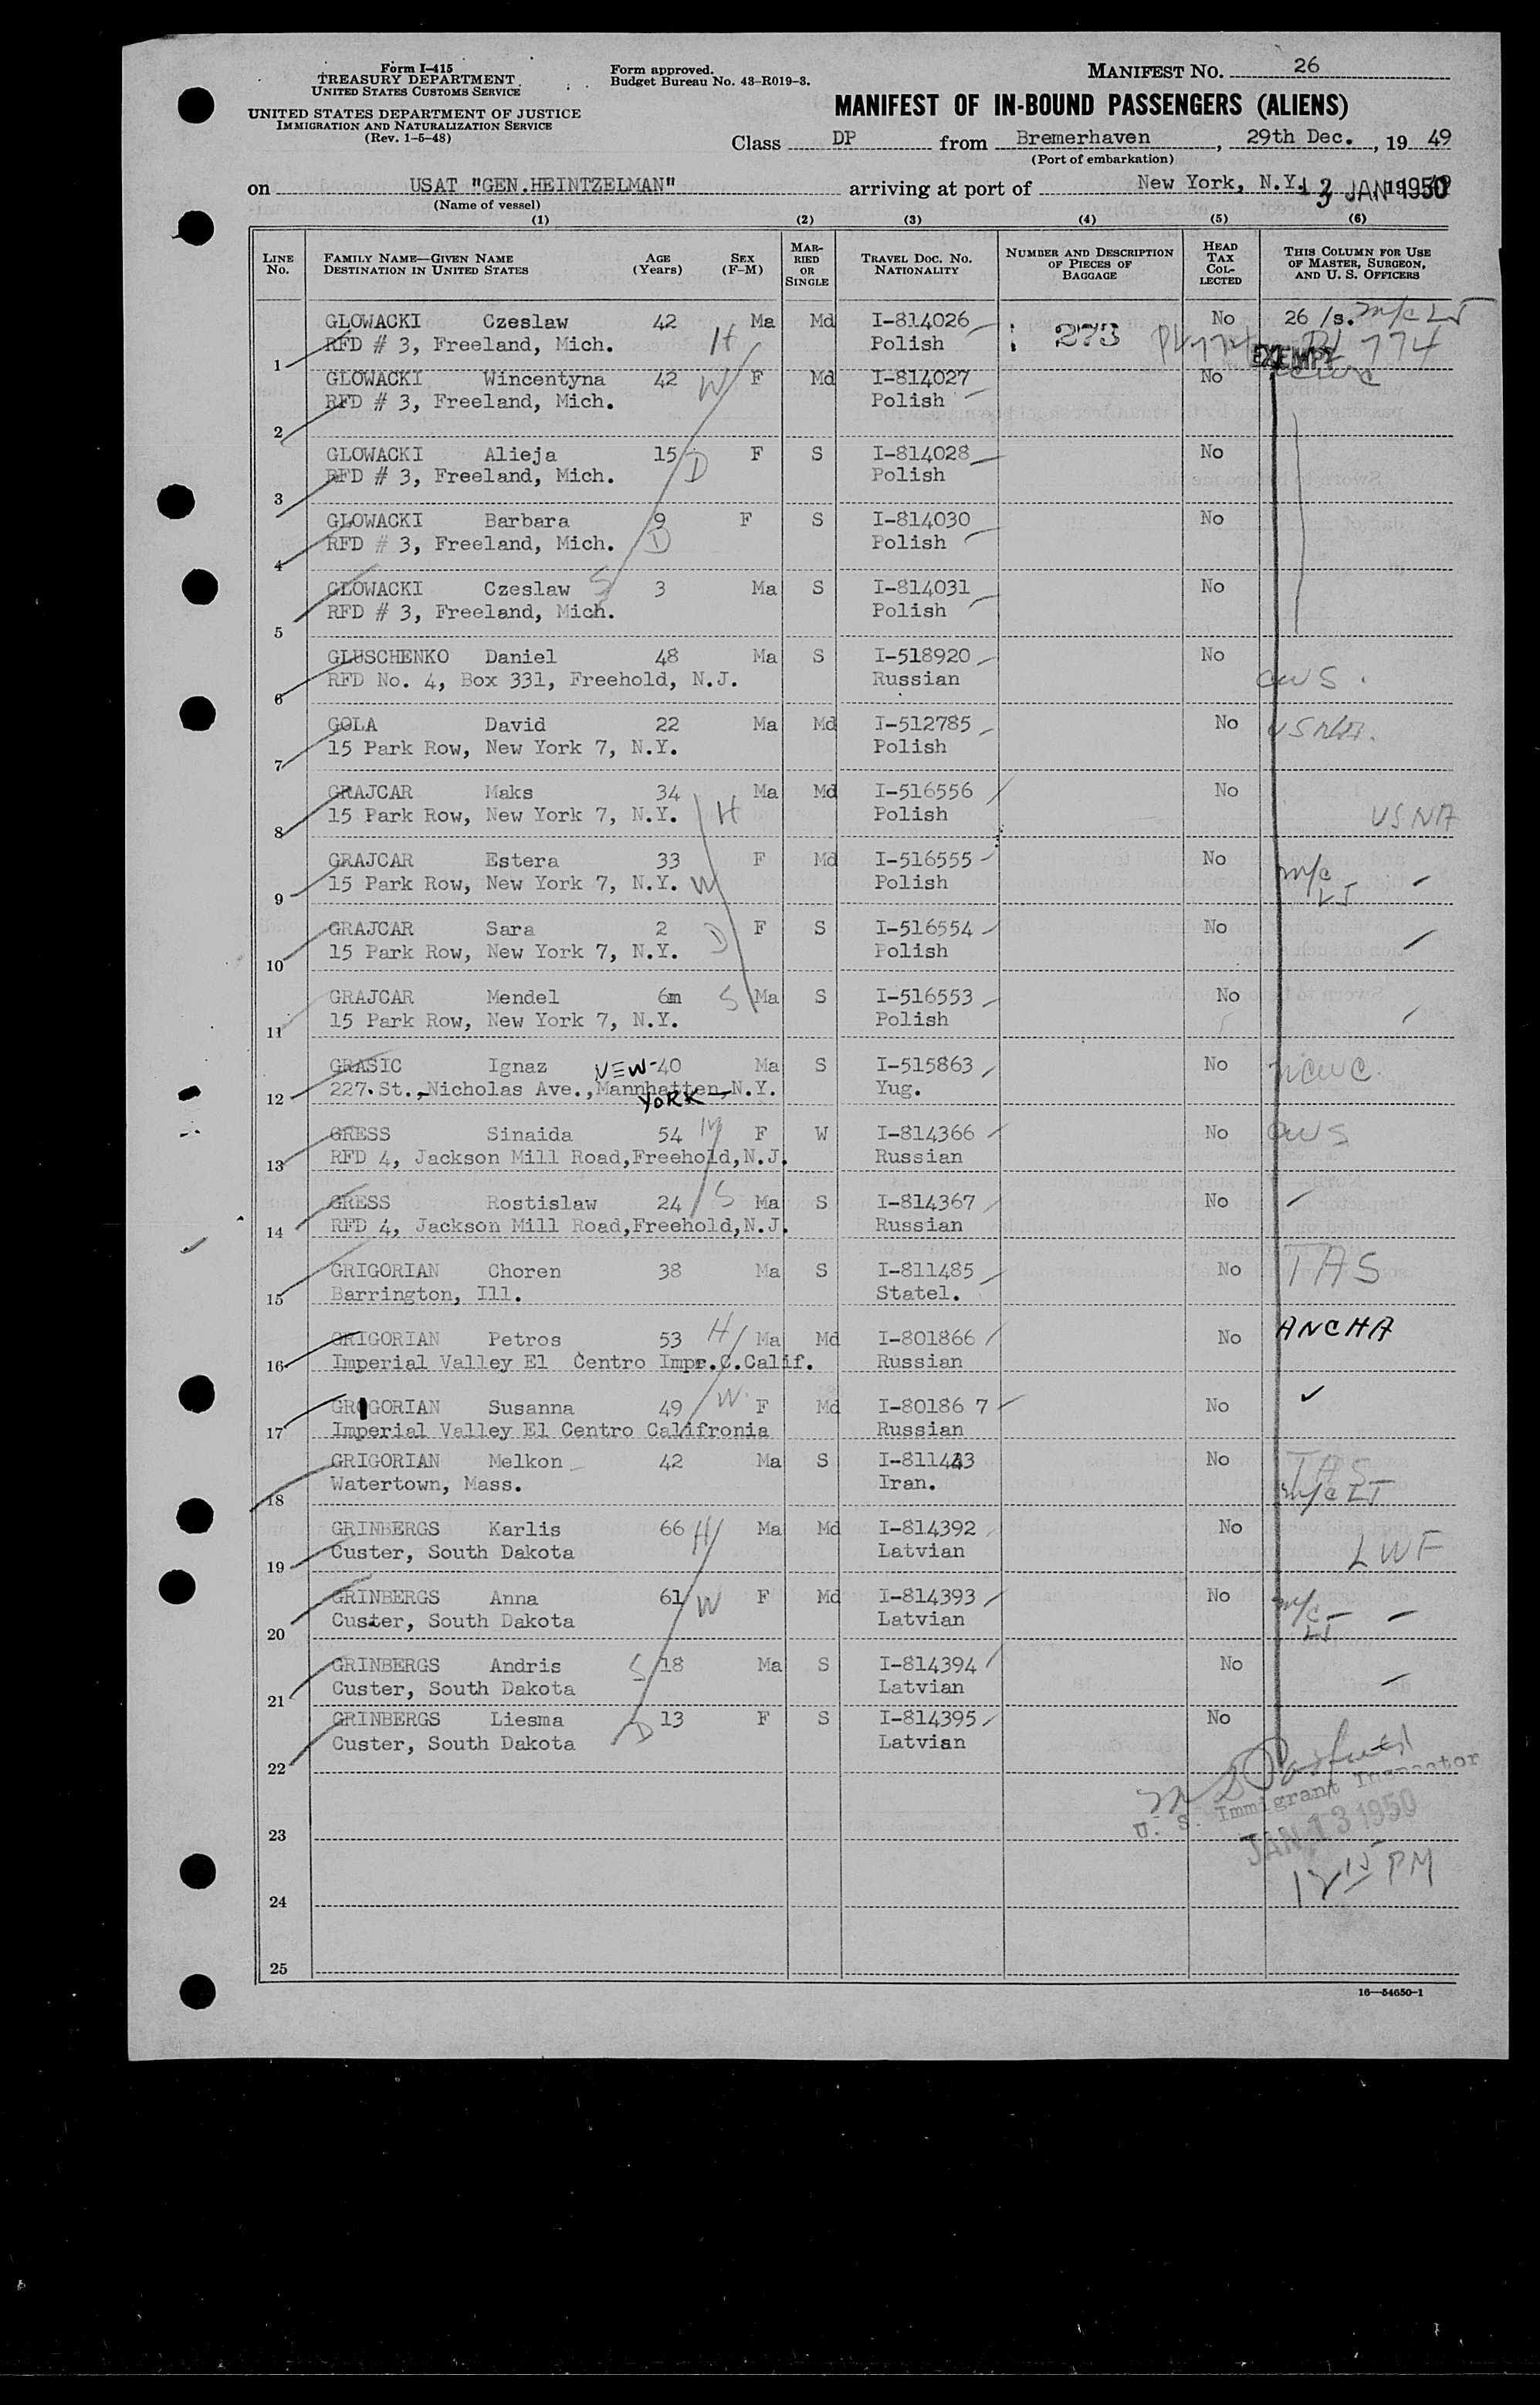 Form I-415
TREASURY DEPARTMENT
UNITED STATES CUSTOMS SERVICE
UNITED STATES DEPARTMENT OF JUSTICE
IMMIGRATION AND NATURALIZATION SERVICE
(Rev. 1-5-48)
Form approved.
Budget Bureau No. 43-R019-3.
MANIFEST NO. 26
MANIFEST OF IN-BOUND PASSENGERS (ALIENS)
Class DP from Bremerhaven, 29th Dec., 19 49
(Port of embarkation)
on USAT "GEN.HEINTZELMAN" arriving at port of New York, N.Y. 13 JAN 1950
(Name of vessel)
(1) (2) (3) (4) (5) (6)
LINE No. FAMILY NAME—GIVEN NAME DESTINATION IN UNITED STATES AGE (Years) SEX (F-M) MARRIED OR SINGLE TRAVEL DOC. NO. NATIONALITY NUMBER AND DESCRIPTION OF PIECES OF BAGGAGE HEAD TAX COLLECTED THIS COLUMN FOR USE OF MASTER, SURGEON, AND U. S. OFFICERS
GLOWACKI Czeslaw 42 Ma Md I-814026 No 26 /s. m/c LT
1 RFD # 3, Freeland, Mich. H Polish 273 PL 774
EXEMPT
GLOWACKI Wincentyna 42 W F Md I-814027 No ncwc
2 RFD # 3, Freeland, Mich. Polish
GLOWACKI Alieja 15 D F S I-814028 No
3 RFD # 3, Freeland, Mich. Polish
GLOWACKI Barbara 9 D F S I-814030 No
4 RFD # 3, Freeland, Mich. Polish
GLOWACKI Czeslaw S 3 Ma S I-814031 No
5 RFD # 3, Freeland, Mich. Polish
GLUSCHENKO Daniel 48 Ma S I-518920 No
6 RFD No. 4, Box 331, Freehold, N.J. Russian cws.
GOLA David 22 Ma Md I-512785 No USNA.
7 15 Park Row, New York 7, N.Y. Polish
GRAJCAR Maks 34 Ma Md I-516556 No
8 15 Park Row, New York 7, N.Y. H Polish USNA
GRAJCAR Estera 33 F Md I-516555 No m/c LT
9 15 Park Row, New York 7, N.Y. W Polish
GRAJCAR Sara 2 D F S I-516554 No
10 15 Park Row, New York 7, N.Y. Polish
GRAJCAR Mendel 6m S Ma S I-516553 No
11 15 Park Row, New York 7, N.Y. Polish
GRASIC Ignaz NEW 40 Ma S I-515863 No ncwc.
12 227 St., Nicholas Ave., Mannhatten N.Y. Yug.
YORK
GRESS Sinaida 54 M F W I-814366 No cws
13 RFD 4, Jackson Mill Road,Freehold,N.J. Russian
GRESS Rostislaw 24 S Ma S I-814367 No
14 RFD 4, Jackson Mill Road,Freehold,N.J. Russian
GRIGORIAN Choren 38 Ma S I-811485 No TAS
15 Barrington, Ill. Statel.
GRIGORIAN Petros 53 H Ma Md I-801866 No ANCHA
16 Imperial Valley El Centro Impr.C.Calif. Russian
GRIGORIAN Susanna 49 W F Md I-80186 7 No
17 Imperial Valley El Centro Califronia Russian
GRIGORIAN Melkon 42 Ma S I-811443 No TAS
18 Watertown, Mass. Iran. m/c LT
GRINBERGS Karlis 66 H Ma Md I-814392 No
19 Custer, South Dakota Latvian LWF
GRINBERGS Anna 61 W F Md I-814393 No m/c LT
20 Custer, South Dakota Latvian
GRINBERGS Andris S 18 Ma S I-814394 No
21 Custer, South Dakota Latvian
GRINBERGS Liesma D 13 F S I-814395 No
22 Custer, South Dakota Latvian
U. S. Immigrant Inspector
23
JAN 13 1950
12 15 PM
24
25
16—54650-1